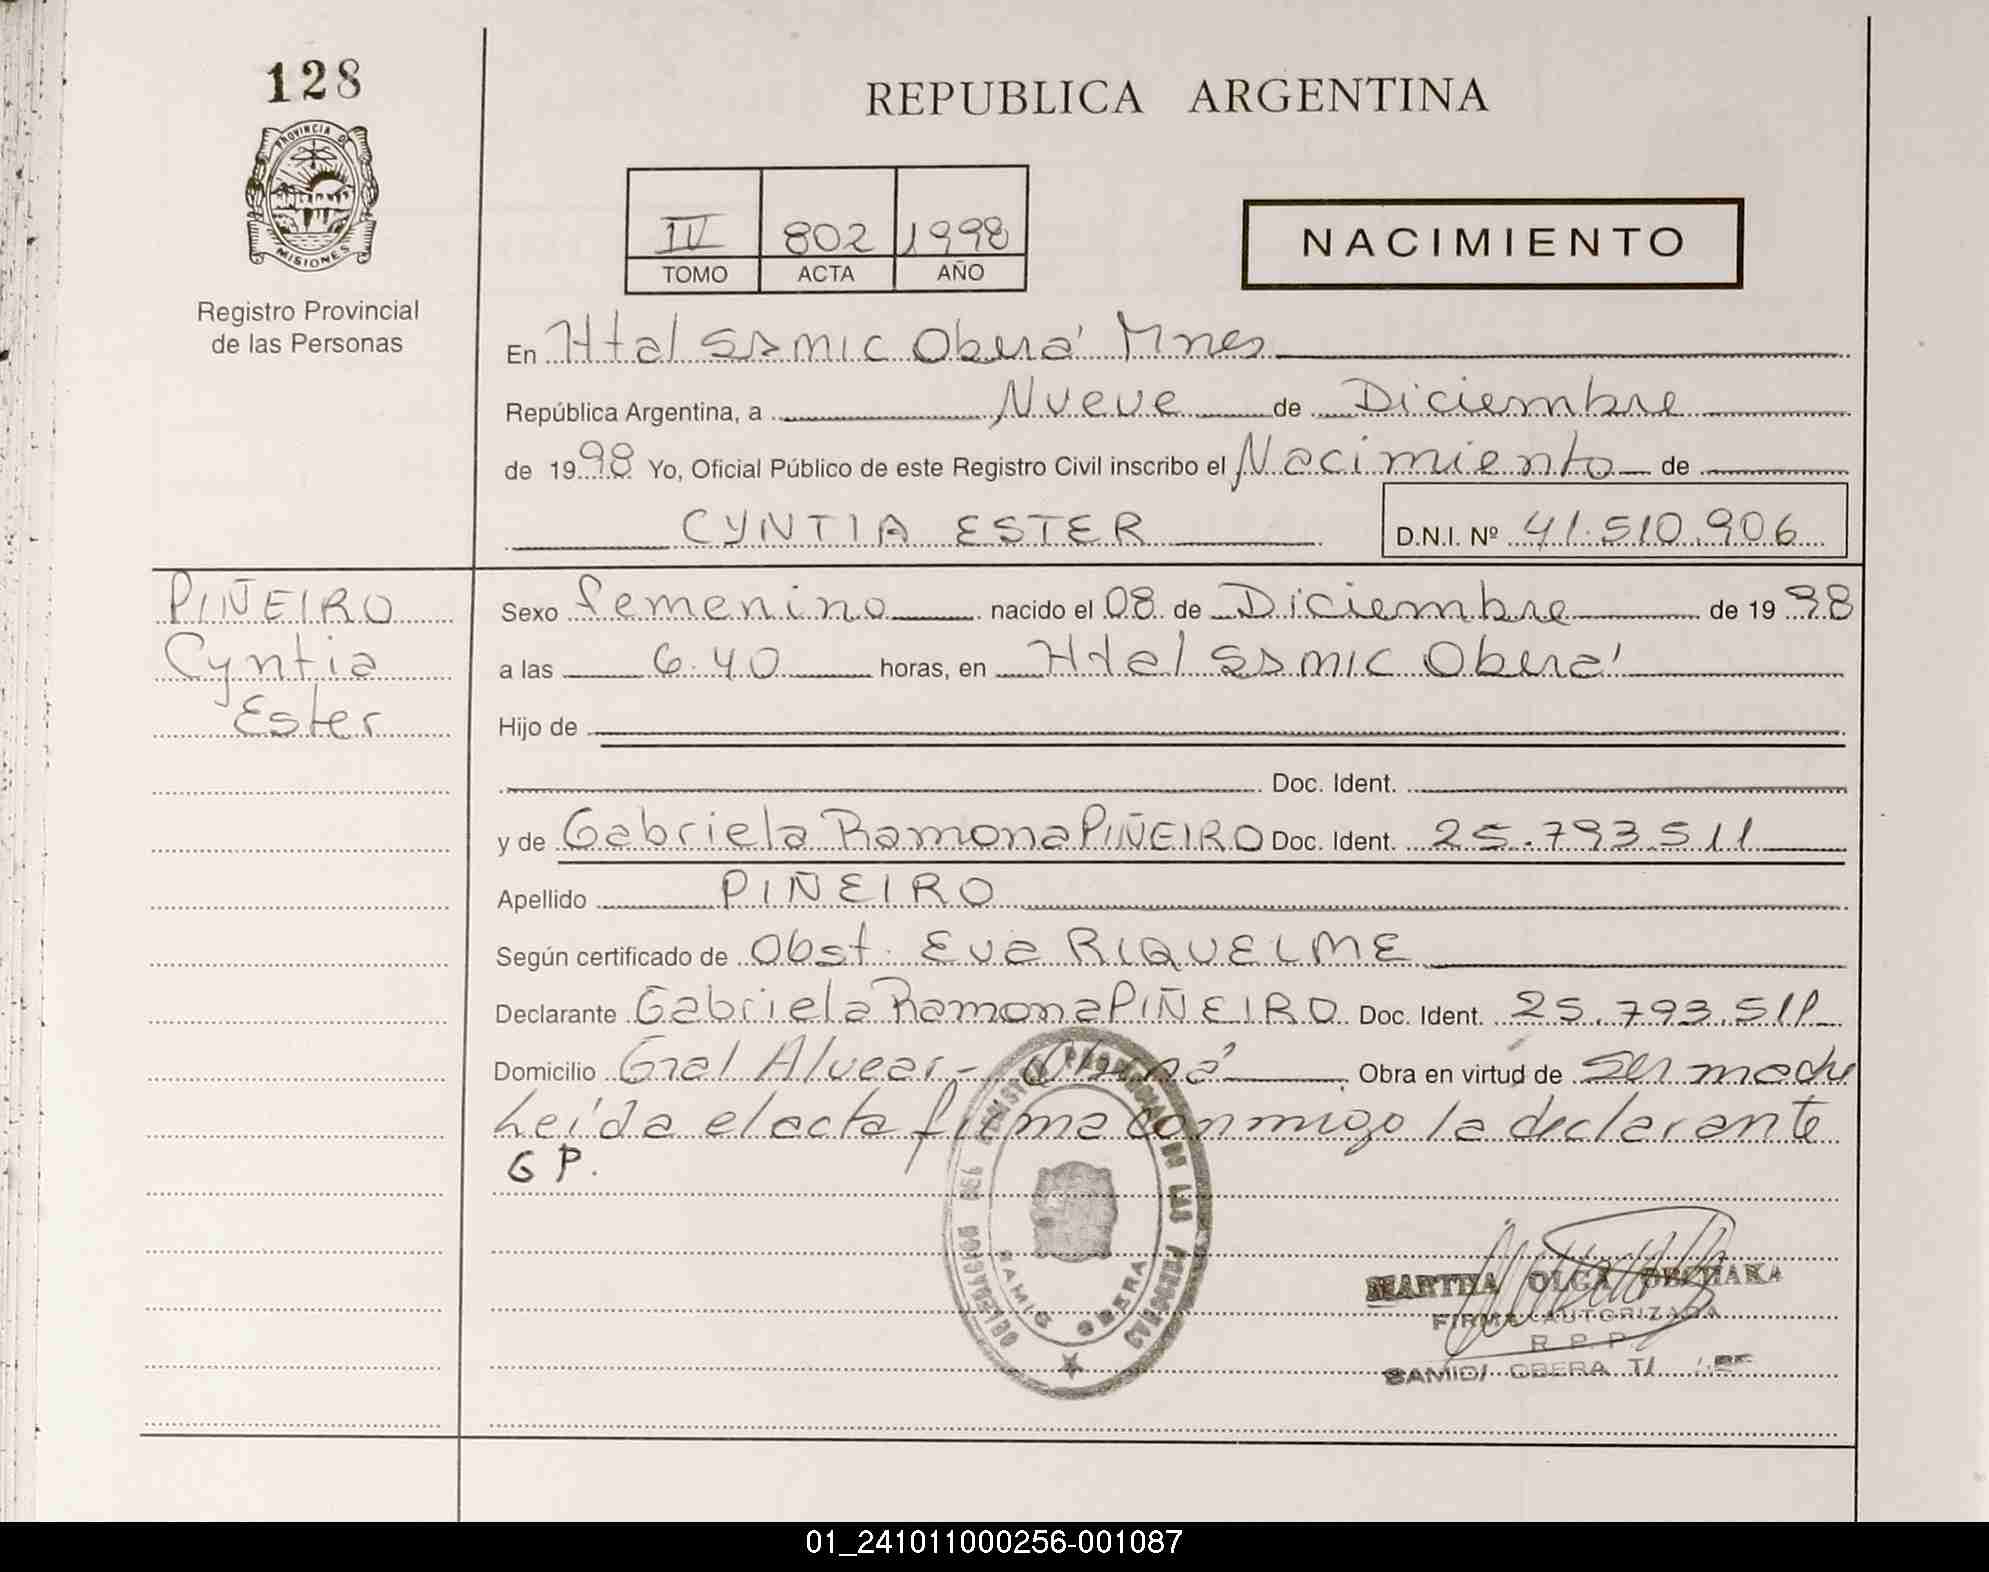 128
PROVINCIA DE
MISIONES
Registro Provincial
de las Personas
REPUBLICA ARGENTINA
IV 802 1998
TOMO ACTA AÑO
NACIMIENTO
En Htal SAMIC Oberá Mnes
República Argentina, a Nueve de Diciembre
de 1998 Yo, Oficial Público de este Registro Civil inscribo el Nacimiento de
CYNTIA ESTER D.N.I. Nº 41.510.906
PIÑEIRO
Cyntia
Ester
Sexo femenino nacido el 08 de Diciembre de 1998
a las 6.40 horas, en Htal SAMIC Oberá
Hijo de
Doc. Ident.
y de Gabriela Ramona PIÑEIRO Doc. Ident. 25.793.511
Apellido PIÑEIRO
Según certificado de Obst. Eva RIQUELME
Declarante Gabriela Ramona PIÑEIRO Doc. Ident. 25.793.511
Domicilio Gral Alvear - Oberá Obra en virtud de ser madre
Leída el acta firma conmigo la declarante
G P.
DELEGACION DEL REGISTRO PROVINCIAL DE LAS PERSONAS
SAMIC OBERA
MARTHA OLGA
FIRMA AUTORIZADA
R. P. P.
OBERA
01_241011000256-001087